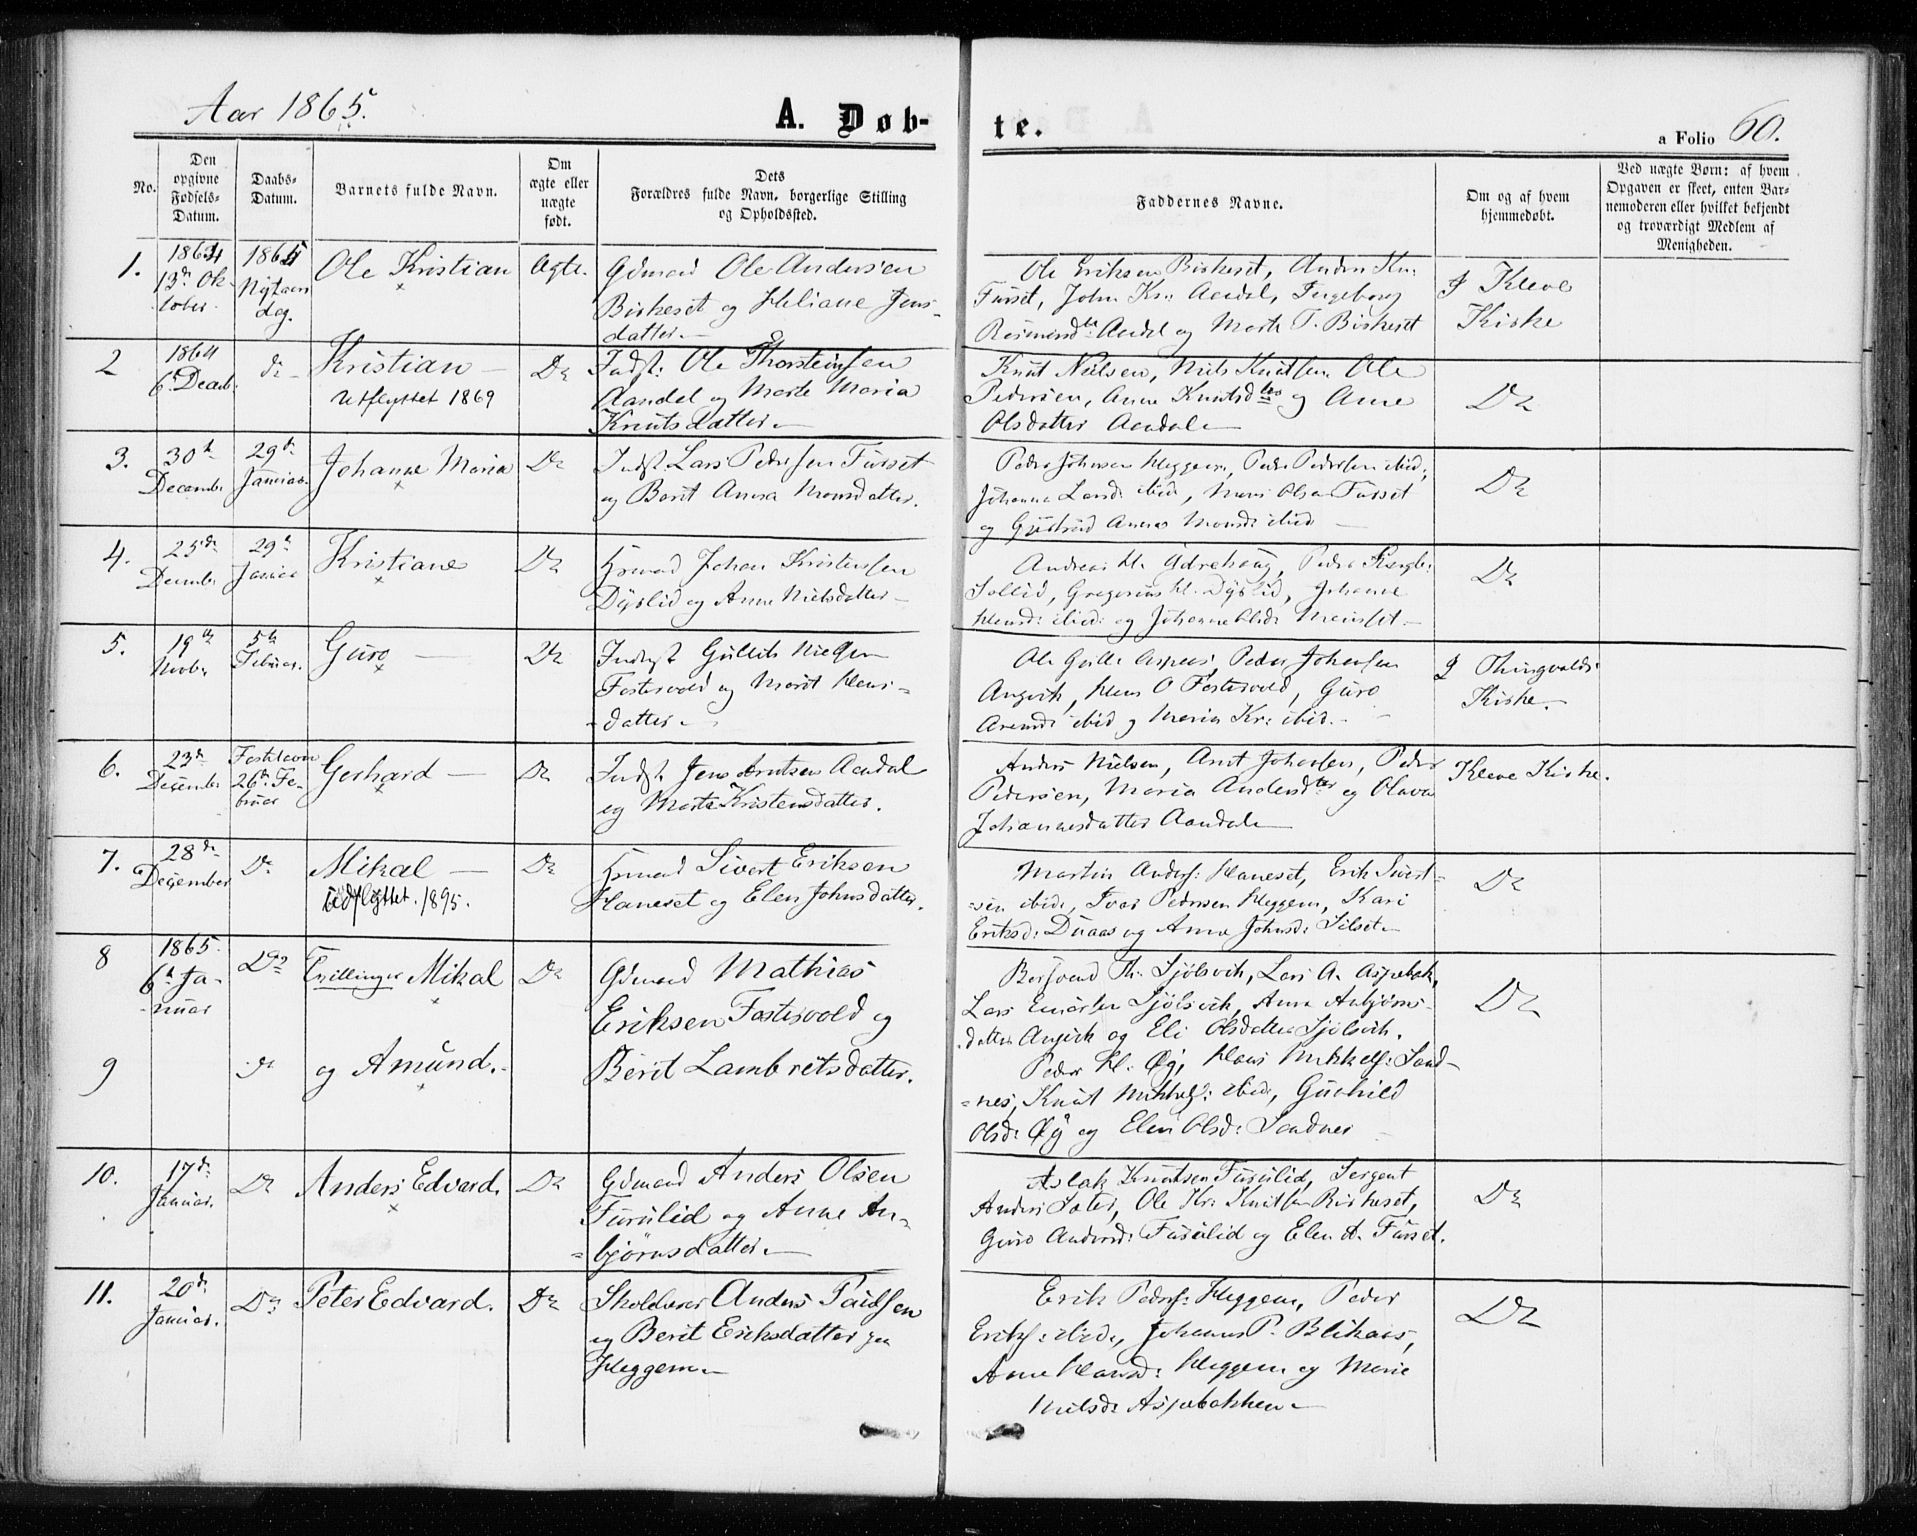 Aar 1865.
A. Døb-
te.
a Folio 60.
No.
Den opgivne Fødsels-Datum.
Daabs-Datum.
Barnets fulde Navn.
Om ægte eller uægte født.
Dets Forældres fulde Navn, borgerlige Stilling og Opholdssted.
Faddernes Navne.
Om og af hvem hjemmedøbt.
Ved uægte Børn: af hvem Opgaven er skeet, enten Bar-nemoderen eller hvilket bekjendt og troværdigt Medlem af Menigheden.
1.
1864
13de Ok-
tober.
1865
Nytaars
dag.
Ole Kristian
Ægte.
Gdmand Ole Andersen
Birkeset og Heliane Jens-
datter.
Ole Eriksen Birkeset, Anders Kn.
Furset, John Kr. Aandal, Ingeborg
Rasmusdtr Aandal og Marte T. Birkeset
I Kleve
Kirke
2
1864
6te Decemb.
do
Kristian
Utflyttet 1869
Do
Indst. Ole Thorsteinsen
Aandal og Marte Maria
Knutsdatter
Knut Nielsen, Niels Knutsen, Ole
Pedersen, Anne Knutsdtr og Anne
Olsdatter Aandal
Do
3.
30te
Decembr
29de
Januar.
Johanne Maria
Do
Indst Lars Pedersen Furset
og Berit Anna Monsdatter.
Peder Johnsen Heggem, Peder Pedersen ibid,
Johanne Larsd: ibid, Mons Olsen Furset
og Gjertrud Annas Monsd: ibid
Do
4.
25de
Decembr
29de
Januar
Kristiane
Do
Hrmand Johan Kristensen
Dyrlid og Anne Nielsdatter
Andreas H. Ydrehaug, Peder
Sollid, Gregorius H. Dyrlid, Johanne
Hansd: ibid: og Johanne Olsd:
Do
5.
19de
Novbr
5te
Februar.
Guro
Do
Indrgst Gullik
Fostervold og Marit Hans-
datter
Ole Gulliks. Aspaas, Peder Johansen
Angvik, Hans O Fostervold, Guro
Arnsd: ibid og Maria Kr: ibid.
I Thingvolds
Kirke.
6.
23de
Decembr
Fastelavn
26de Fe-
bruar
Gerhard
Do
Indst. Jens Arntsen Aandal
og Marte Kristensdatter.
Anders Nielsen, Arnt Johansen, Peder
Pedersen, Maria Andersdtr og Olava
Johannesdatter Aandal
Kleve Kirke.
7.
28de
December
Do
Mikal
Udflyttet. 1895.
Do
Hrmand Sivert Eriksen
Haneset og Elen Johnsdatter.
Martin Anders: Haneset, Erik Sivert-
sen ibid, Ivar Pedersen Heggem, Kari
Eriksd: Duaas og Anne Johnsd: Silset
Do
8
1865.
6te Ja-
nuar
Do
Tvillinger Mikal
Do
Gdmand Mathias
Eriksen Fostervold og
Berit Lambretsdatter.
Bersvend Th. Sjølsvik, Lars A. Aspebak,
Lars Sjølsvik, Anne Anbjørns-
datter Angvik og Eli Olsdatter Sjølsvik.
Do
9
do
og Amund.
Peder H. Øy, Hans Mikkels: Sand-
nes, Knut Mikkels: ibid, Gunhild
Olsd: Øy og Elen Olsd: Sandnes
10.
17de
Januar.
Do
Anders Edvard.
Do
Gdmand Anders Olsen
Furulid og Anne An-
bjørnsdatter
Aslak Knutsen Furulid, Sergent
Anders Sæter, Ole Kr: Knutsen Birkeset,
Guro Andersd: Furulid og Elen A. Furset.
Do
11.
20de
Januar.
Do
Peter Edvard.
Do
Skolelærer Anders Paulsen
og Berit Eriksdatter paa
Heggem
Erik Peders: Heggem, Peder
Eriks: ibid, Johannes P. Blikaas,
Anne Hansd: Heggem og Marie
Nielsd: Aspebakken
Do